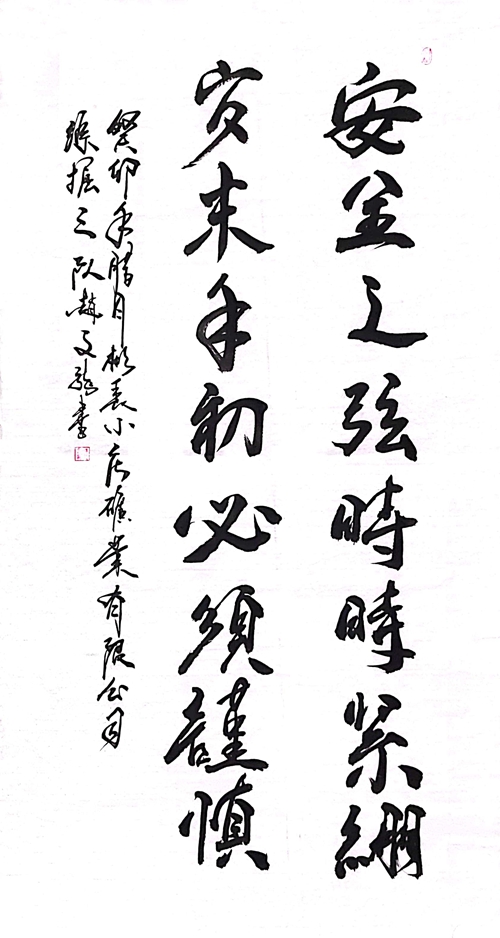 安全之弦時時紧绷
岁末年初必须謹慎
癸卯年腊月彬長小庄礦業有限公司
綜掘三队趙文龍書